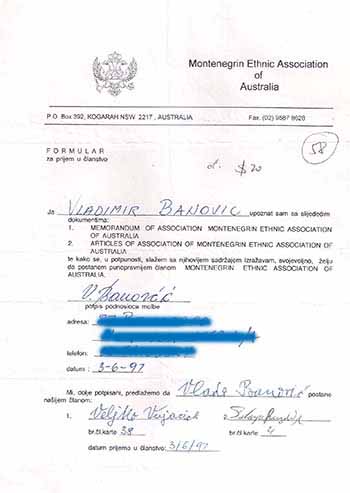 Montenegrin Ethnic Association
of
Australia
P.O Box 392, KOGARAH NSW 2217, AUSTRALIA Fax. (02) 9587 8628
FORMULAR
za prijem u članstvo
58
$20
Ja VLADIMIR BANOVIC upoznat sam sa slijedećim
dokumentima:
1. MEMORANDUM OF ASSOCIATION MONTENEGRIN ETHNIC ASSOCIATION
OF AUSTRALIA
2. ARTICLES OF ASSOCIATION OF MONTENEGRIN ETHNIC ASSOCIATION OF
AUSTRALIA.
te kako se, u potpunosti, slažem sa njihovijem sadržajem izražavam, svojevoljno, želju
da postanem punopravnijem članom MONTENEGRIN ETHNIC ASSOCIATION OF
AUSTRALIA.
V. Banović
potpis podnosioca molbe
adresa:
telefon:
datum: 3-6-97
Mi, dolje potpisani, predlažemo da Vlado Banović postane
našijem članom:
1. Veljko 2.
br.čl.karte 38 br.čl.karte 4
datum prijema u članstvo: 3/6/97